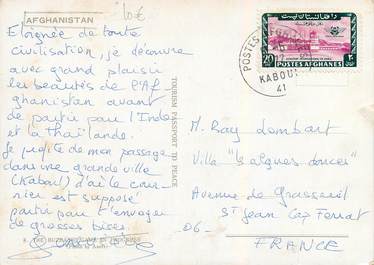 AFGHANISTAN
10€
Eloignée de toute
civilisation, je découvre
avec grand plaisir
les beautés de l'Af
ghanistan avant
de partir pour l'Inde
et la Thaïlande.
Je profite de mon passage
dans une grande ville
(Kaboul) d'où le cour-
rier est supposé
partir pour t'envoyer
de grosses bises.
TOURISM PASSPORT TO PEACE
POSTES AFGHANES
20
POSTES
KABOUL
41
M. Ray Lombart
Villa "Les algues douces"
Avenue de Grasseuil
St Jean Cap Ferrat
06 -
FRANCE